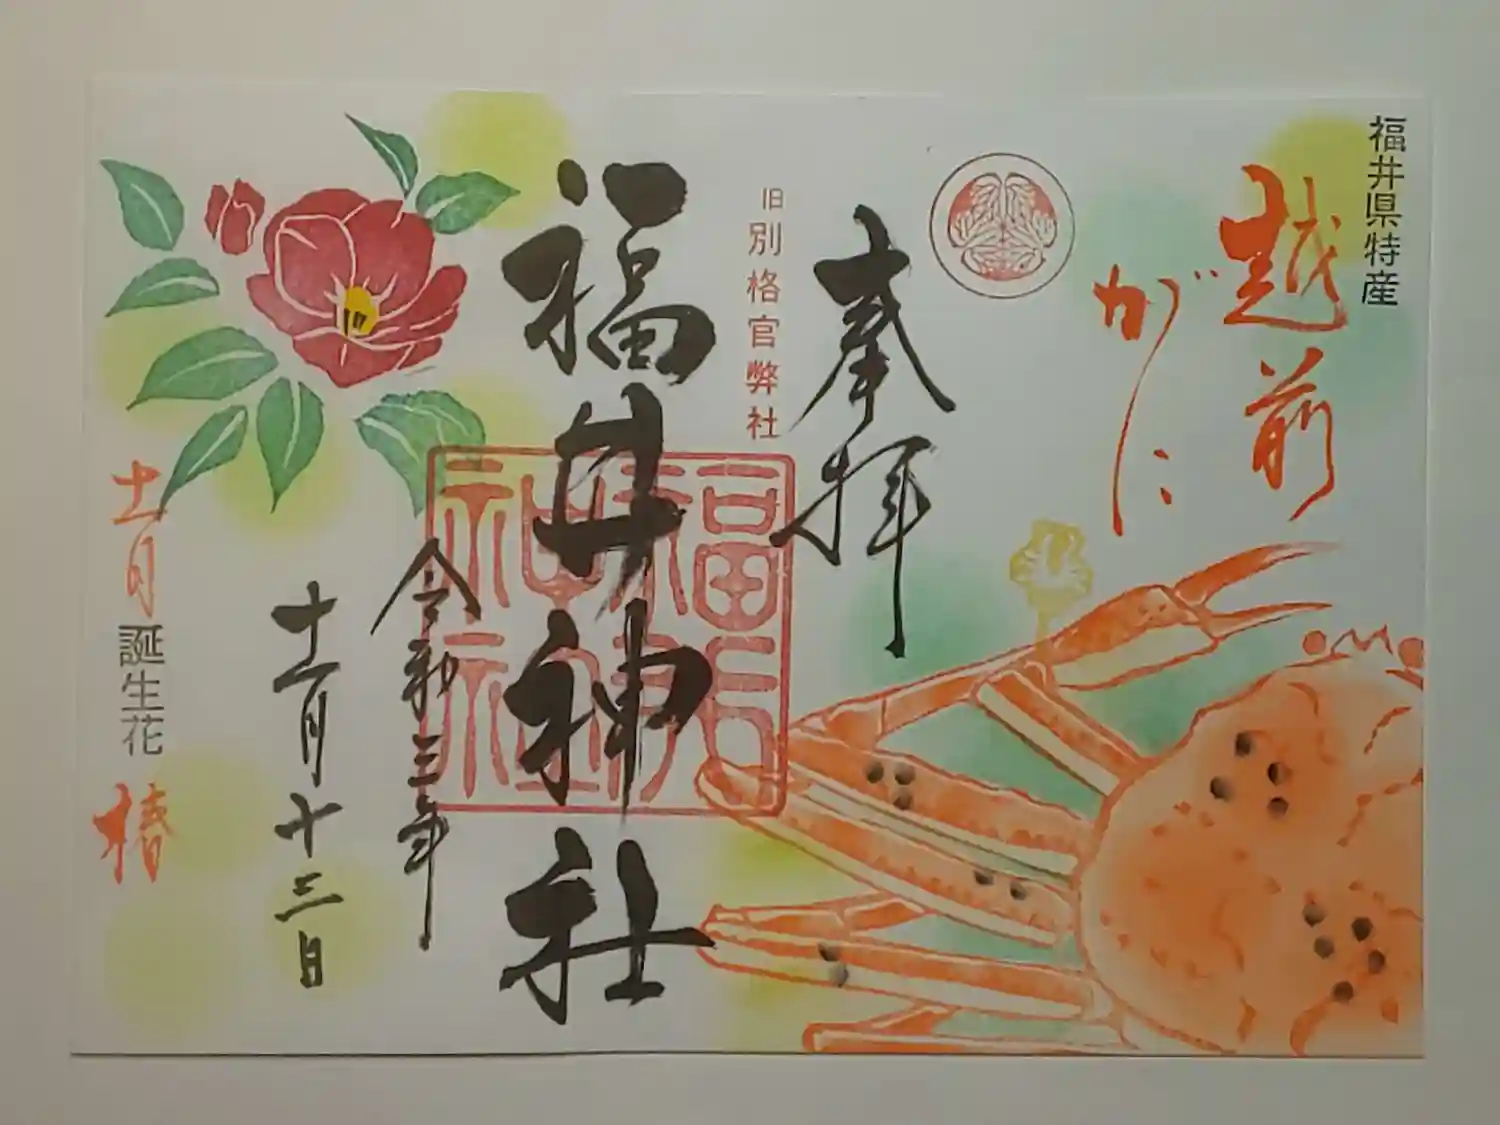 福井県特産
越前
がに
奉拝
旧別格官幣社
福井神社
福井神社
令和三年
十一月十三日
十一月誕生花 椿